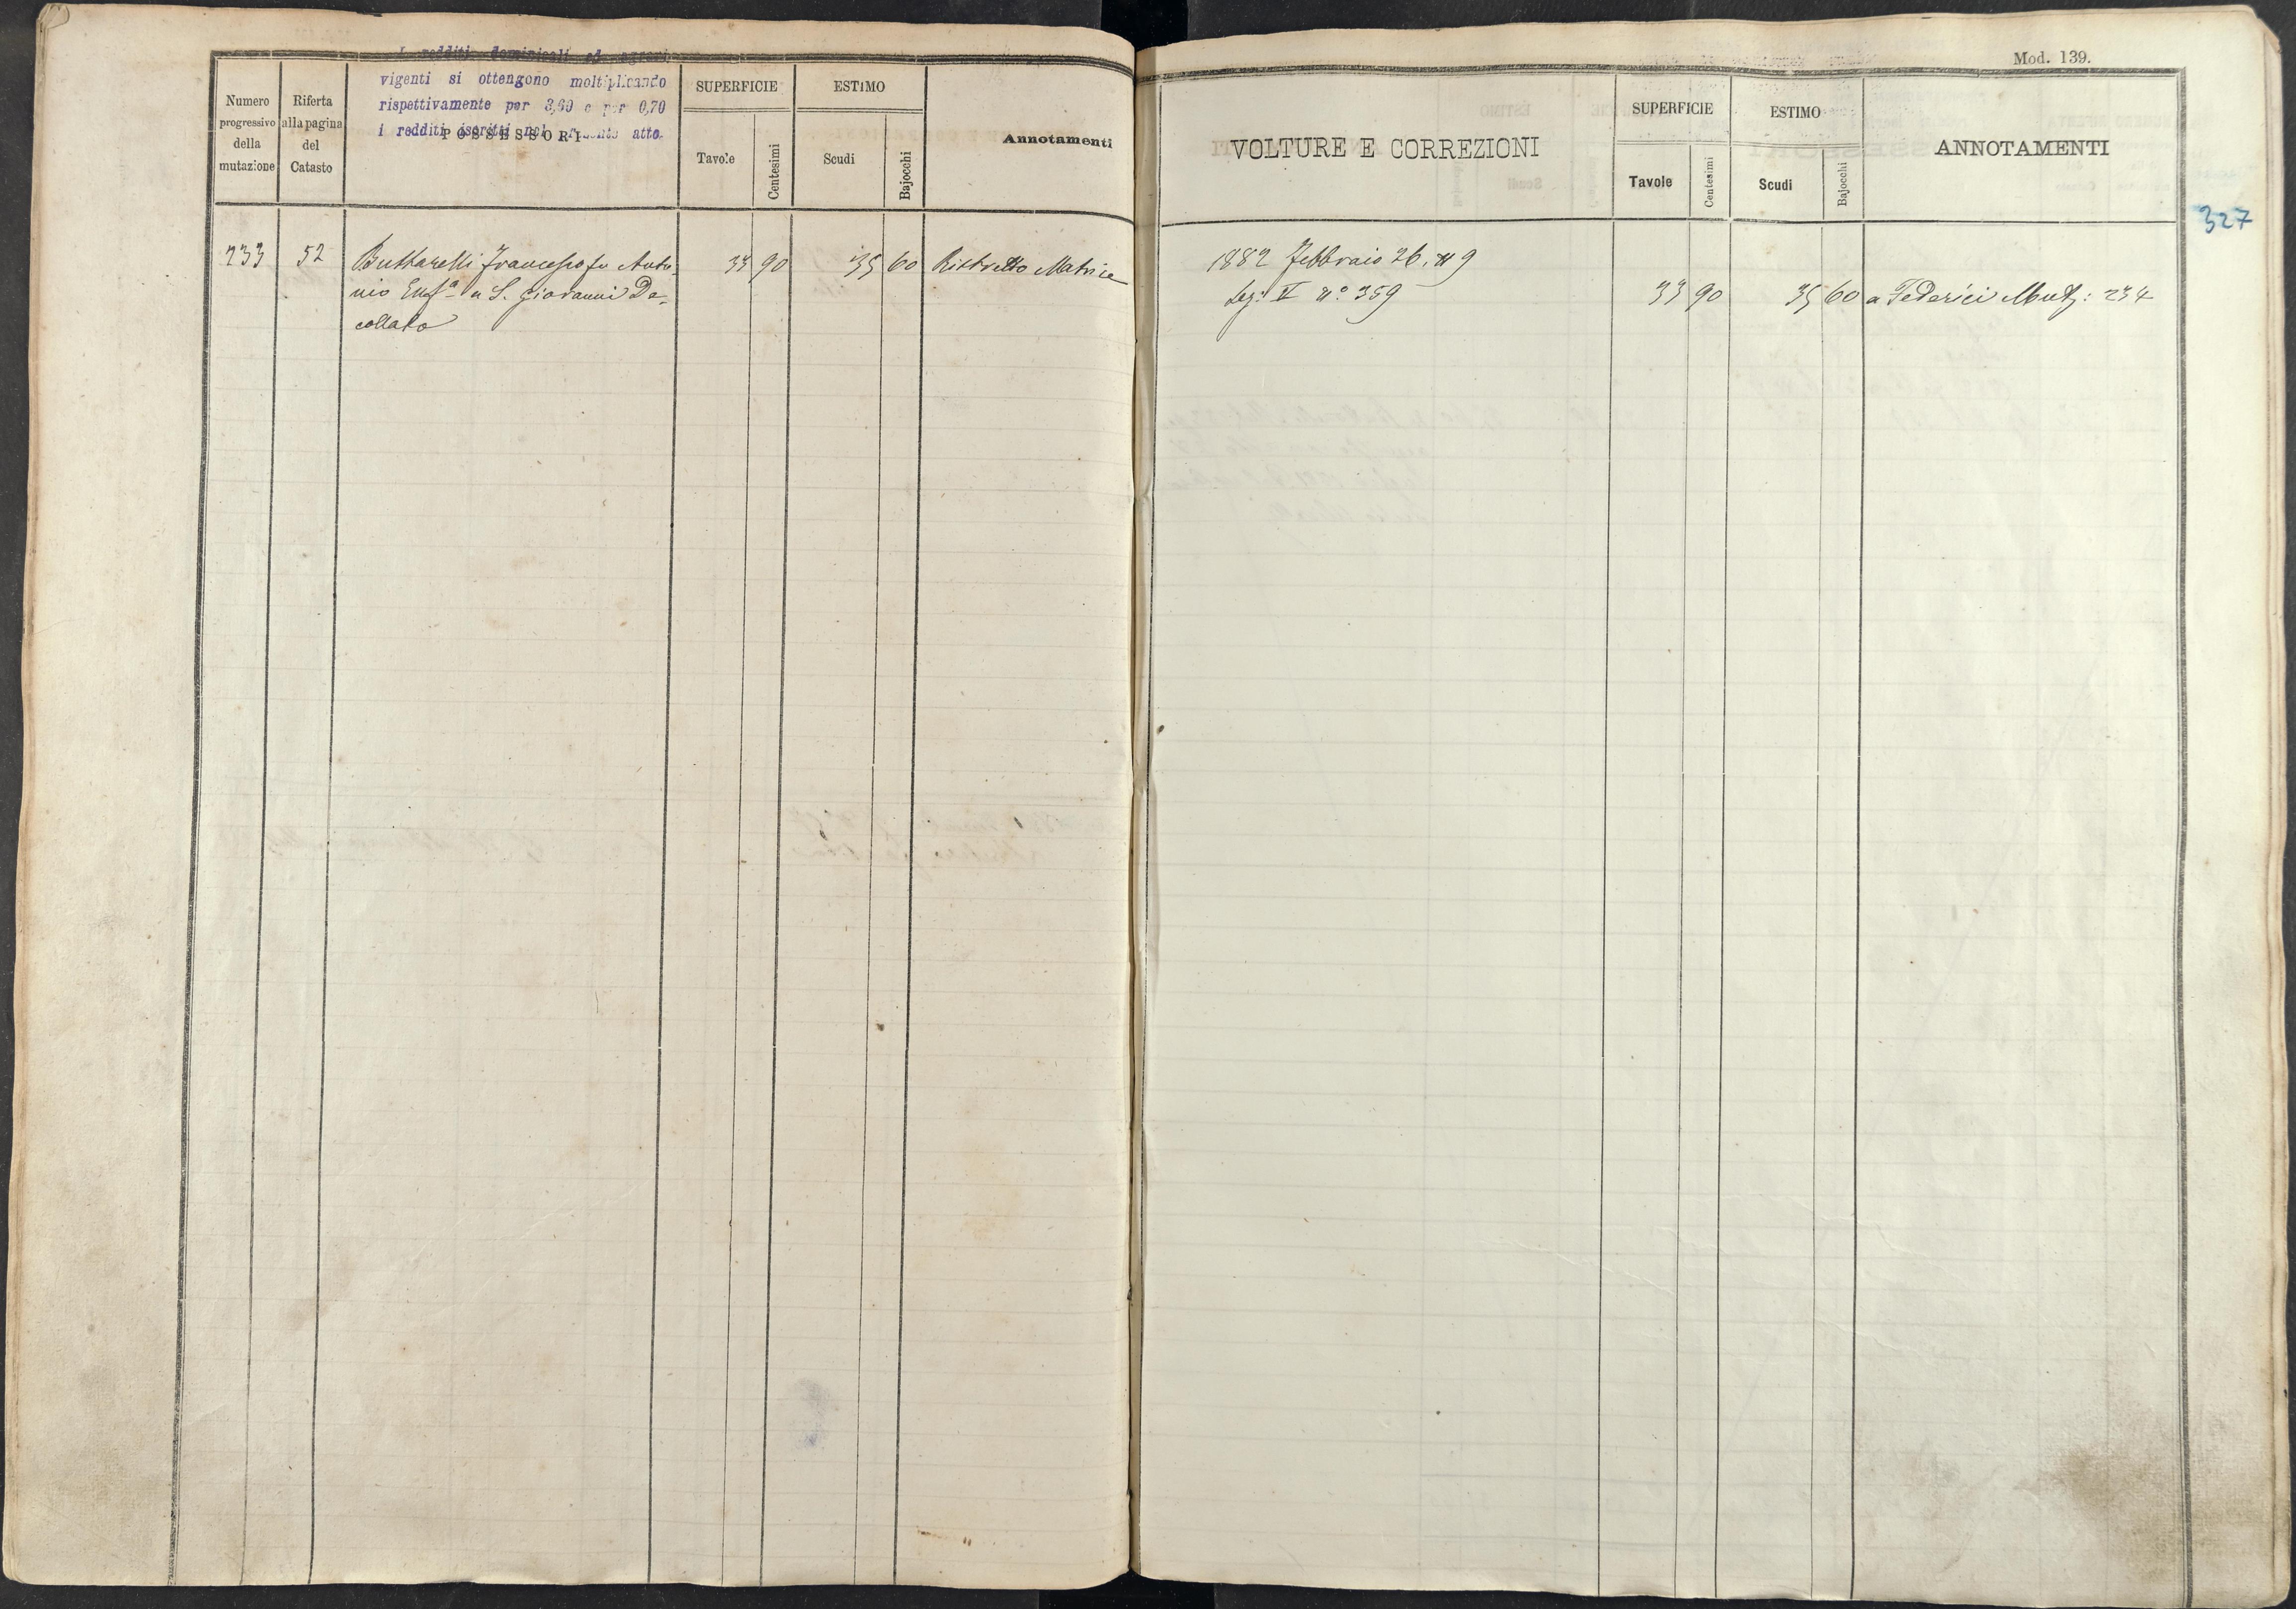 I redditi dominicali ed agrari
vigenti si ottengono moltiplicando
rispettivamente per 3,60 e per 0,70
i redditi iscritti nel presente atto.
Numero
progressivo
della
mutazione
Riferta
alla pagina
del
Catasto
POSSESSORI
SUPERFICIE
Tavole
Centesimi
ESTIMO
Scudi
Bajocchi
Annotamenti
233 52 Buttarelli Francesco fu Anto- 33 90 35 60 Ristretto Matrice
nio Enfª a S. Giovanni De-
collato
Mod. 139.
VOLTURE E CORREZIONI
SUPERFICIE
Tavole
Centesimi
ESTIMO
Scudi
Bajocchi
ANNOTAMENTI
327
1882 Febbraio 26. n 9
Seg: V nº 359 33 90 35 60 a Federici Mut: 234